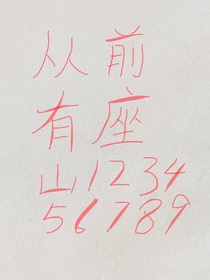 从前
有座
山1234
56789